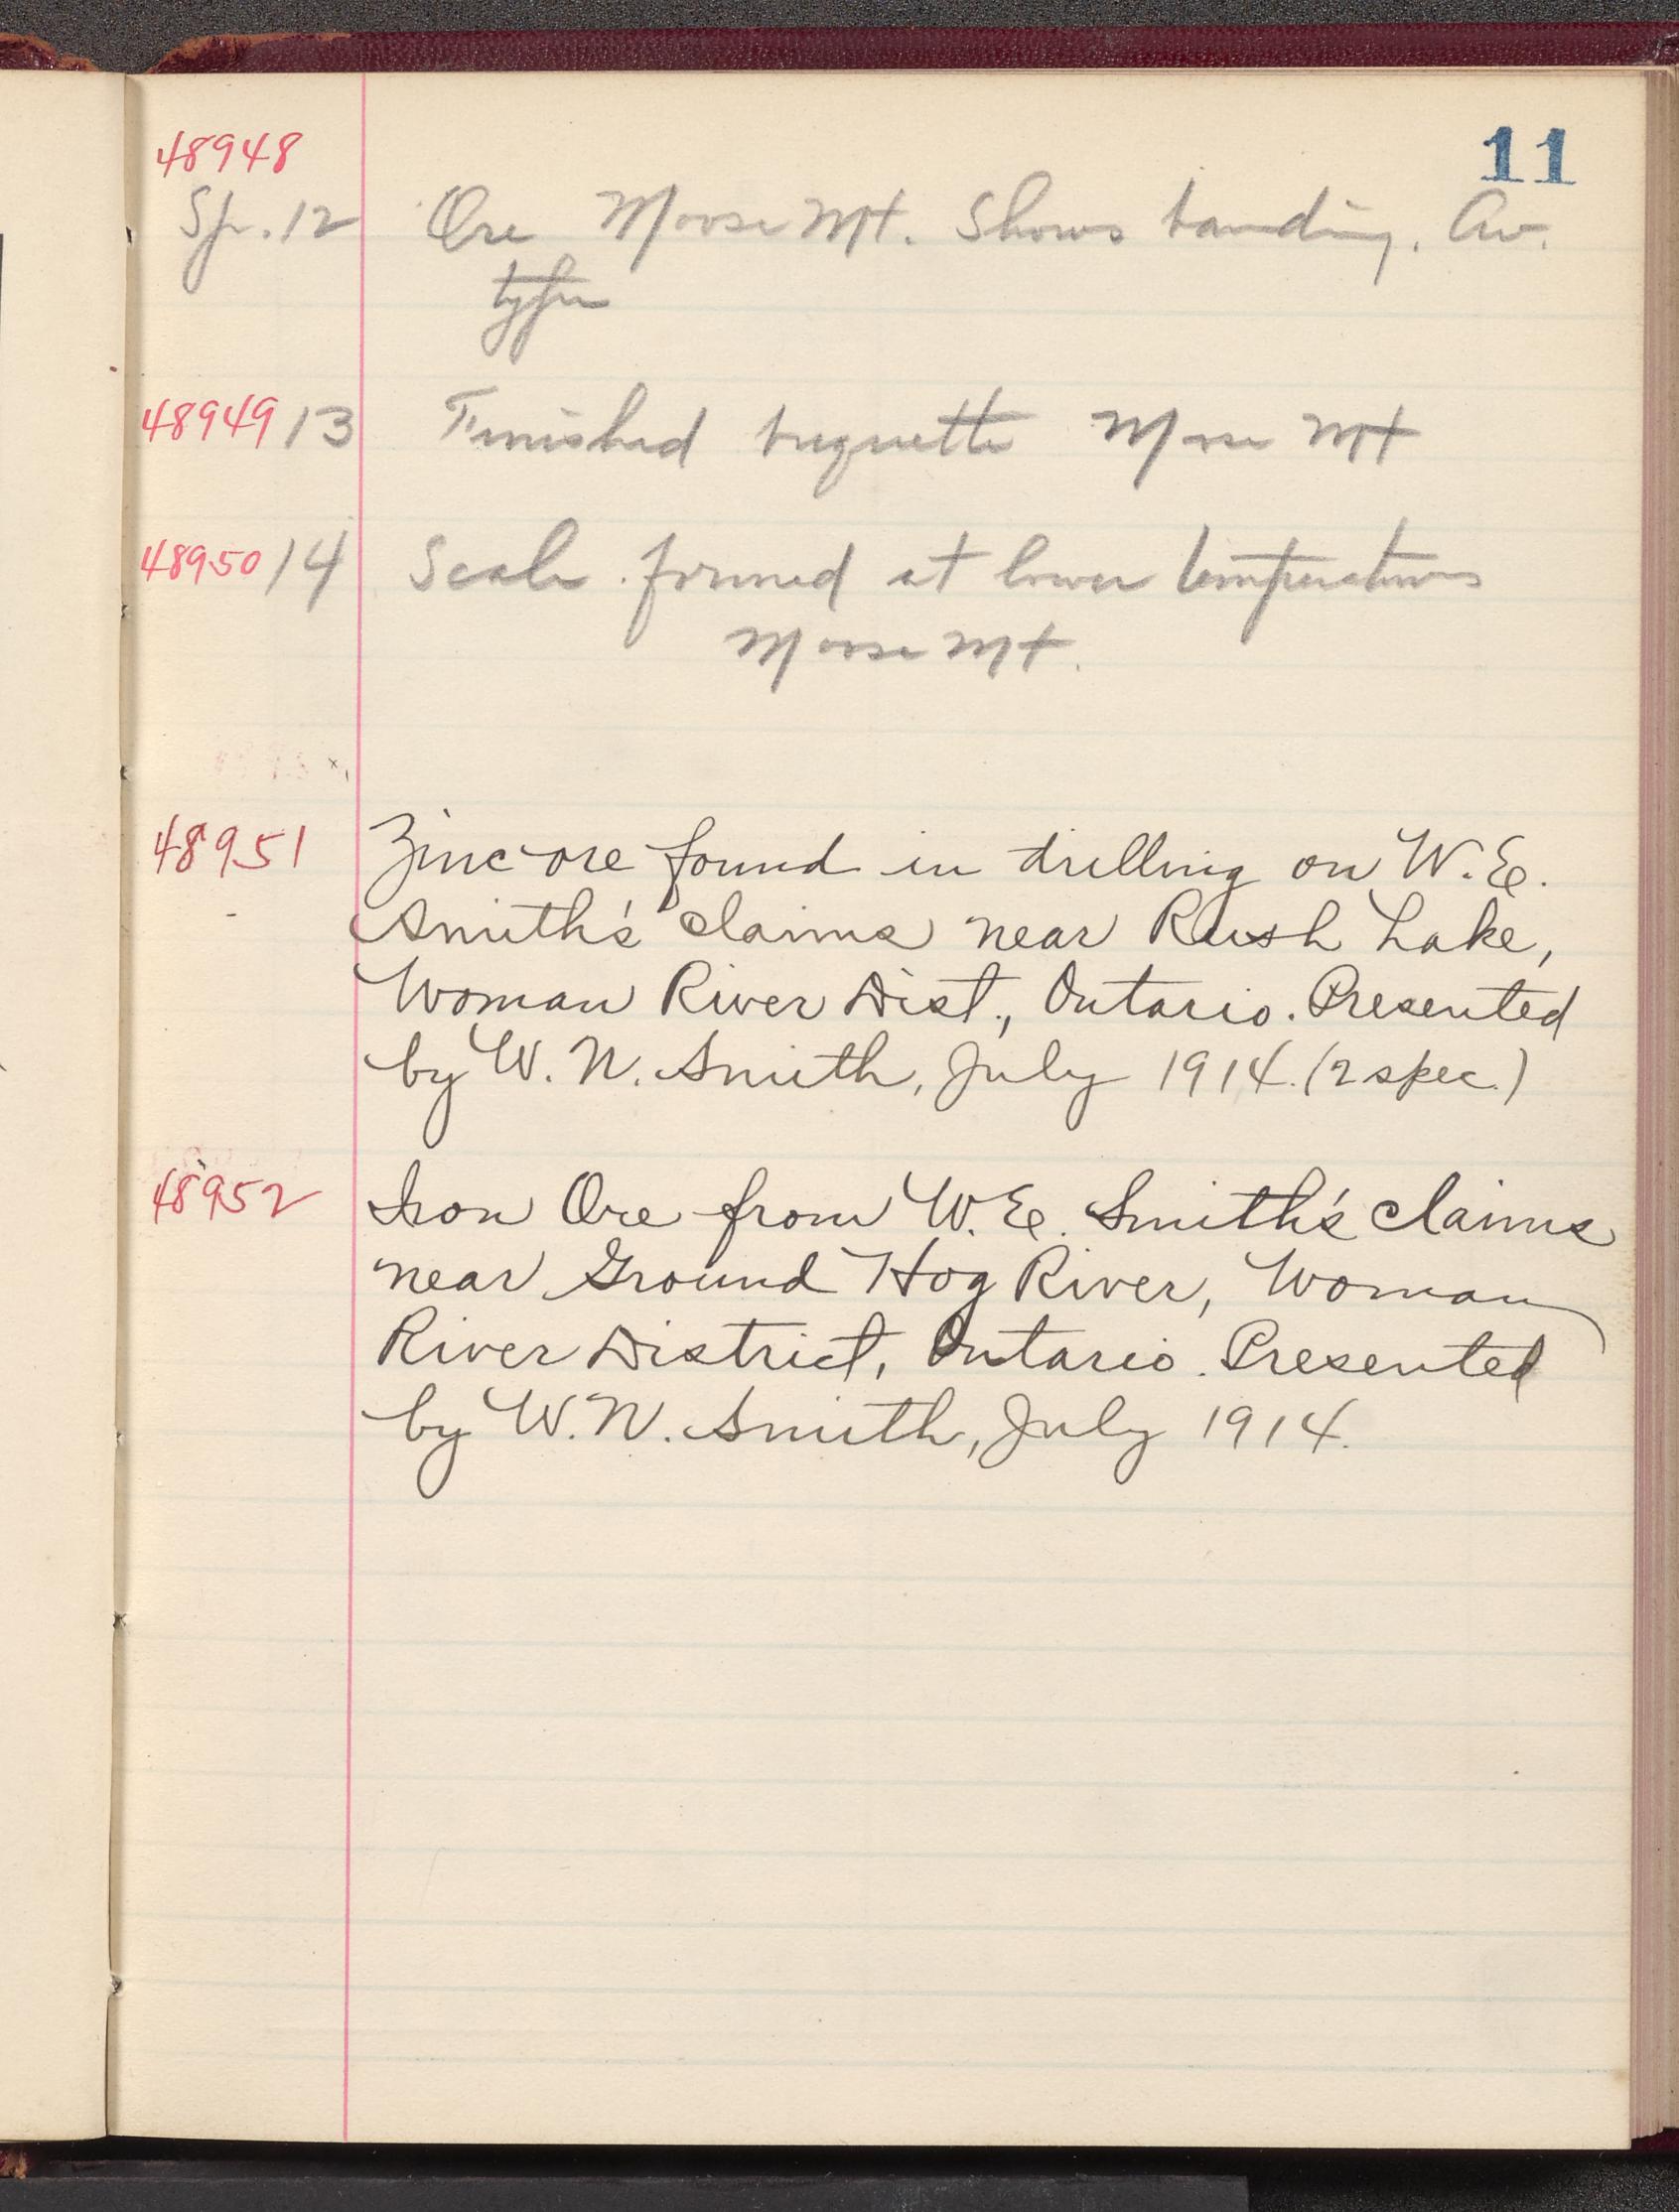 11
48948
Sp. 12 Ore Moose Mt. Shows banding. Av.
type
48949 13 Finished briquette Moose Mt
48950 14 Scale formed at lower temperatures
Moose Mt.
48951 Zinc ore found in drilling on W. E.
Smith's claims near Rush Lake,
Woman River Dist., Ontario. Presented
by W. N. Smith, July 1914. (2 spec.)
48952 Iron Ore from W. E. Smith's claims
near Ground Hog River, Woman
River District, Ontario. Presented
by W. N. Smith, July 1914.